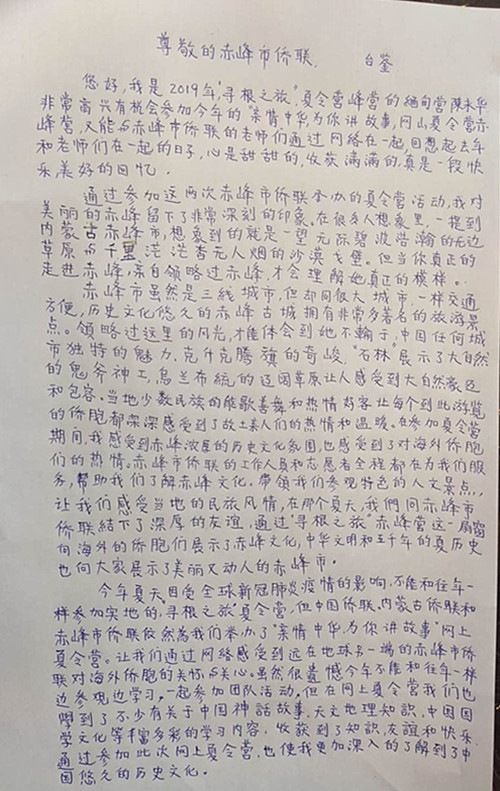 尊敬的赤峰市侨联.
台鉴
您好,我是2019年"寻根之旅"夏令营峰营的缅甸营陳木华
非常高兴有机会参加今年的"亲情中华,为你讲故事,网山夏令营赤
峰营,又能与赤峰市侨联的老师们通过网络在一起回想起去年
和老师们在一起的日子,心是甜甜的,收获满满的,真是一段快
乐,美好的回忆.
通过参加这两次赤峰市侨联举办的夏令营活动,我对
美丽的赤峰留下了非常深刻的印象.在很多人想象里,一提到
内蒙古赤峰市,想象到的就是一望无际碧波浩瀚的无边
草原与千里茫茫杳无人烟的沙漠戈壁。但当你真正的
走进赤峰,亲自领略过赤峰,才会理解她真正的模样。
赤峰市虽然是三线城市,但却同很大城市,一样交通
方便,历史文化悠久的赤峰古城拥有非常多著名的旅游景
点。领略过这里的风光,才能体会到她不输于,中国任何城
市独特的魅力.克什克腾旗的奇峻,石林展示了大自然
的鬼斧神工,乌兰布统的辽阔草原让人感受到大自然豪迈
和包容.当地少数民族的能歌善舞和热情好客让每个到此游览
的侨胞都深深感受到了故土亲人们的热情和温暖.在参加夏令营
期间,我感受到赤峰浓厚的历史文化氛围,也感受到了对海外侨胞
们的热情.赤峰市侨联的工作人员和志愿者全程都在为我们服
务,帮助我们了解赤峰文化.带领我们参观特色的人文景点,,
让我们感受当地的民族风情,在那个夏天,我們同赤峰市
侨联結下了深厚的友谊,通过"寻根之旅"赤峰营这一扇窗
向海外的侨胞们展示了赤峰文化,中华文明和五千年的夏历史
也向大家展示了美丽又动人的赤峰市.
今年夏天因受全球新冠肺炎疫情的影响,不能和往年一
样参加实地的,寻根之旅"夏令营,但中国侨联、内蒙古侨联和
赤峰市侨联依然為我们举办了"亲情中华,为你讲故事"网上
夏令营。让我们通过网络感受到远在地球另一端的赤峰市侨
联对海外侨胞的关怀与关心.虽然很遺憾今年不能和往年一样
边参观边学习,一起参加团队活动,但在网上夏令营我们也
學到了不少有关于中国神話故事.天文地理知識,中国国
学文化等丰富多彩的学习内容,收获到了知識,友谊和快乐.
通过参加此次网上夏令营,也使我更加深入的了解到了中
国悠久的历史文化。